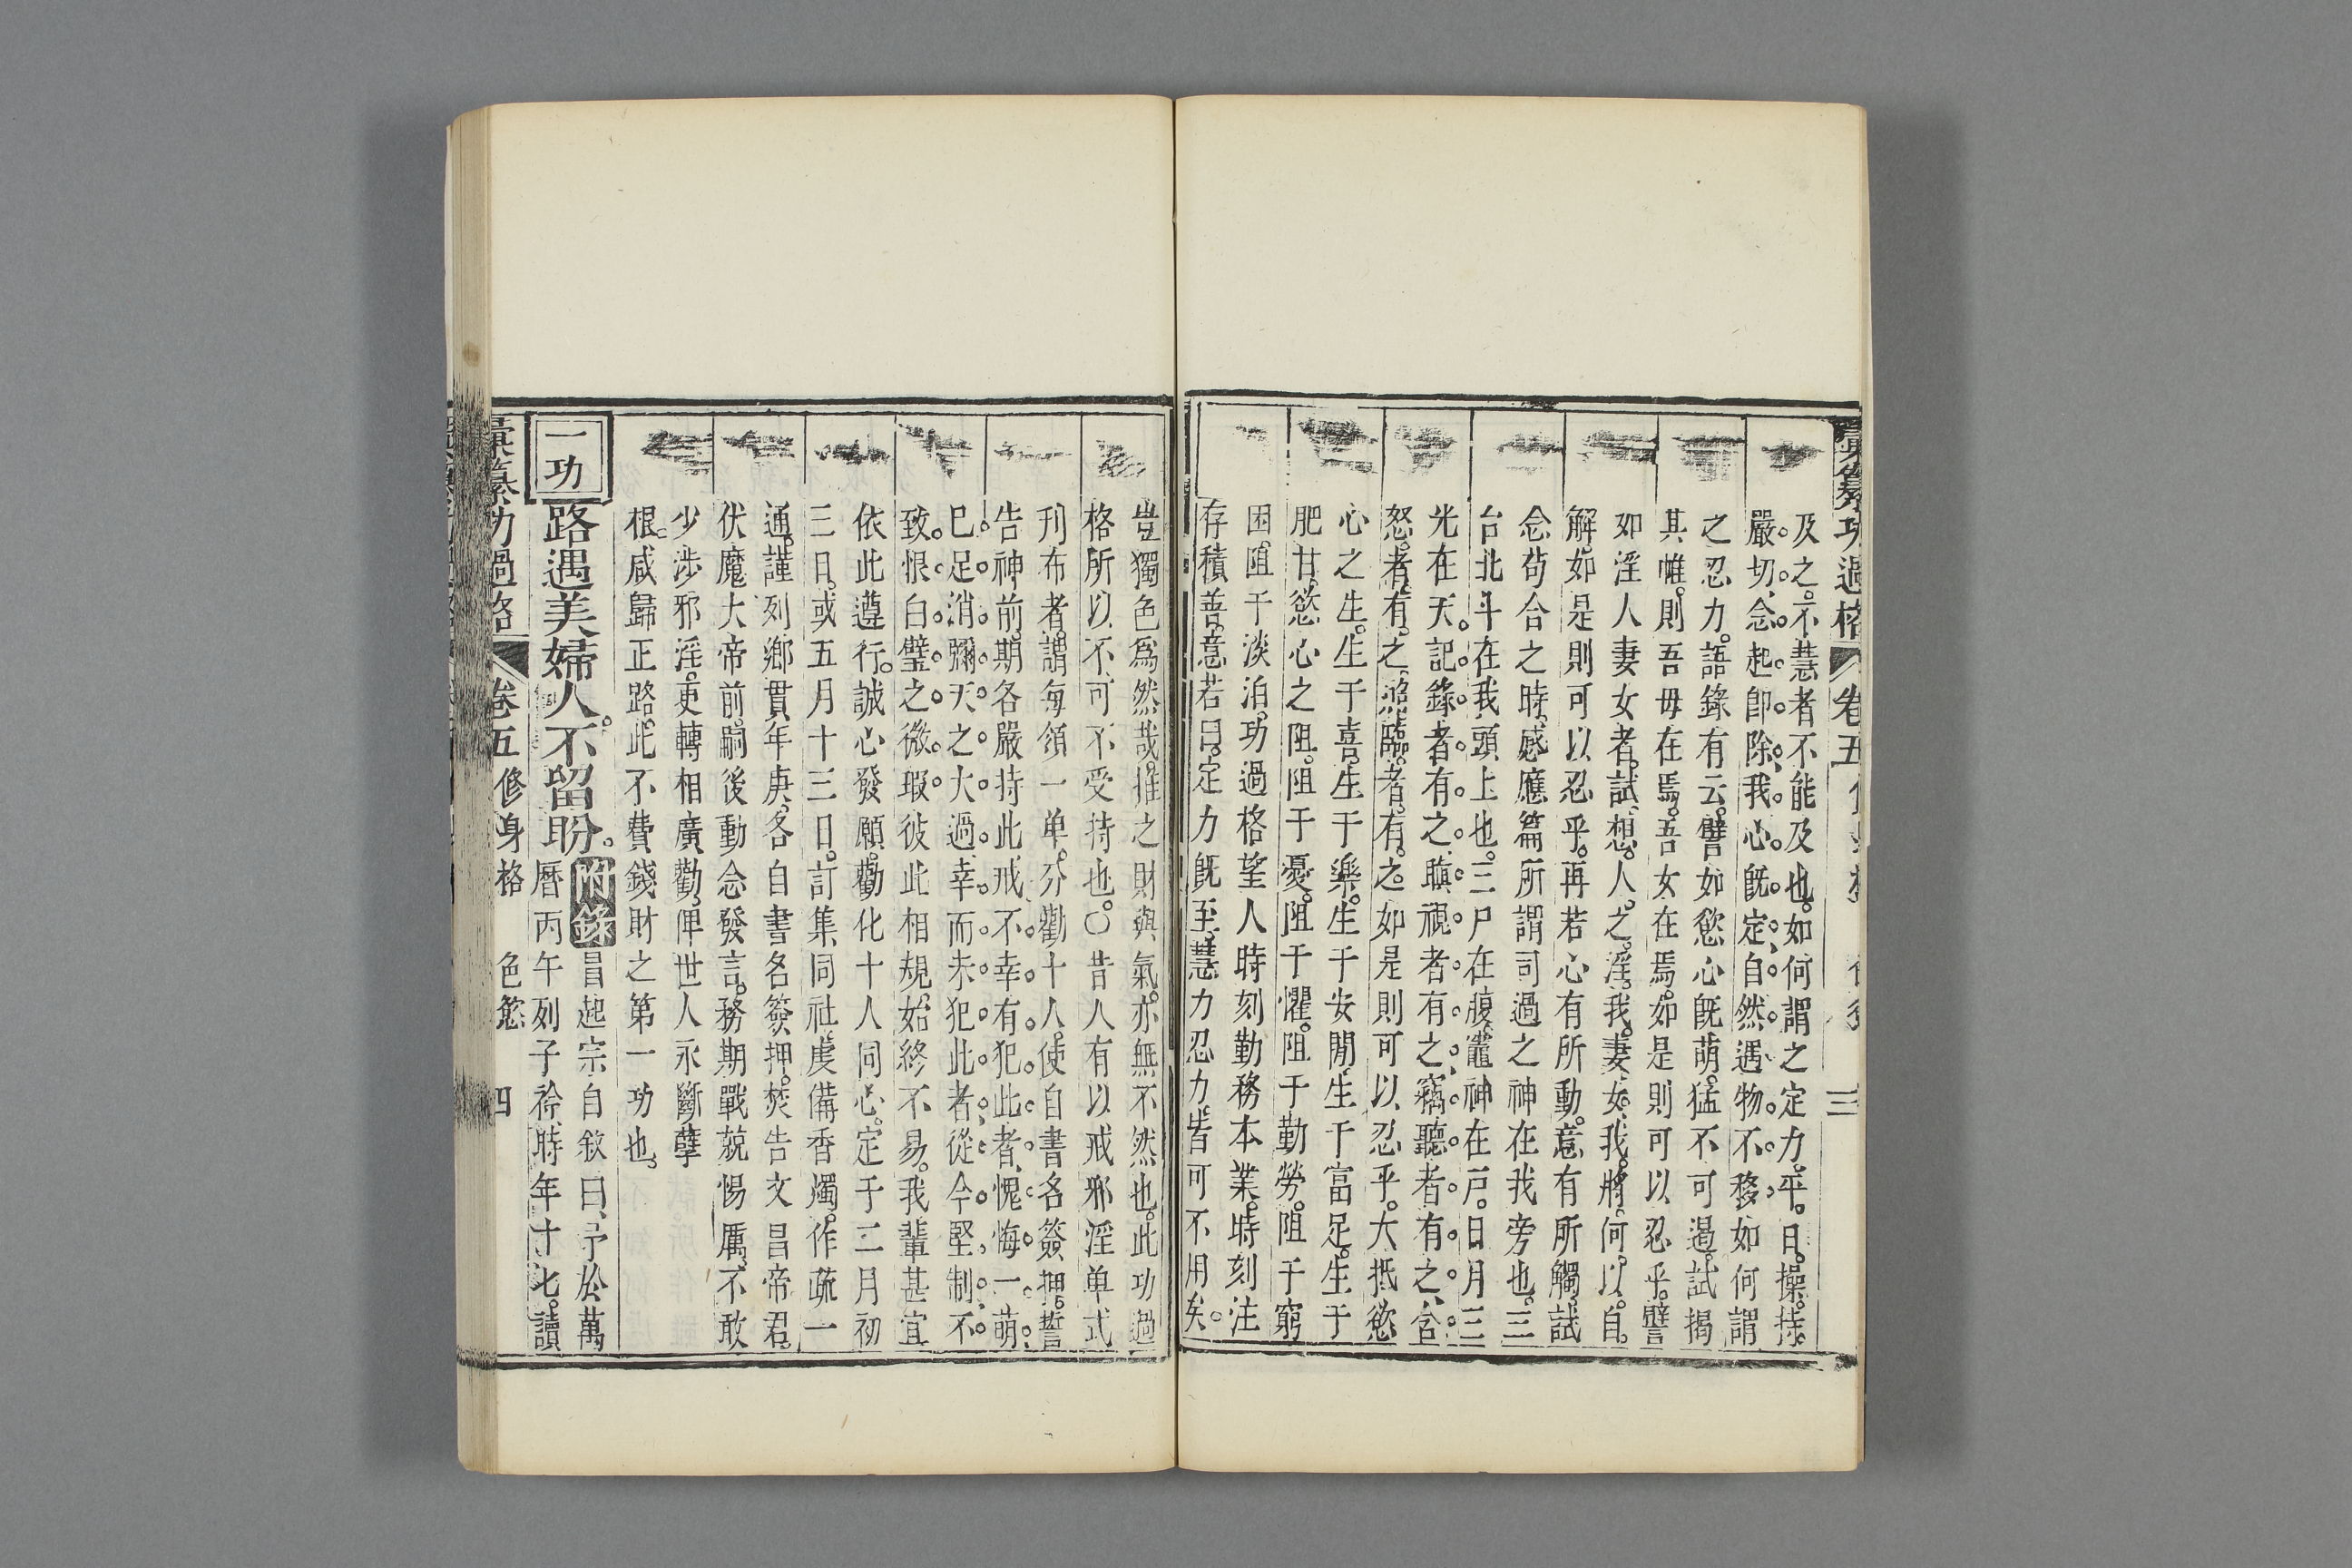 彙纂功過格 卷五 三
及之不慧者不能及也如何謂之定力乎曰操持
嚴切念起卽除我心旣定自然遇物不移如何謂
之忍力語錄有云譬如慾心旣萌猛不可遏試揭
其帷則吾母在焉吾女在焉如是則可以忍乎譬
如淫人妻女者試想人之淫我妻女我將何以自
解如是則可以忍乎再若心有所動意有所觸試
念苟合之時感應篇所謂司過之神在我旁也三
台北斗在我頭上也三尸在腹竈神在戶日月三
光在天記錄者有之瞋視者有之竊聽者有之含
怒者有之照臨者有之如是則可以忍乎大抵慾
心之生生于喜生于樂生于安閒生于富足生于
肥甘慾心之阻阻于憂阻于懼阻于勤勞阻于窮
困阻于淡泊功過格望人時刻勤務本業時刻注
存積善意若曰定力旣至慧力忍力皆可不用矣
豈獨色爲然哉推之財與氣亦無不然也此功過
格所以不可不受持也○昔人有以戒邪淫单式
刋布者謂每領一单分勸十人使自書名簽押誓
告神前期各嚴持此戒不幸有犯此者愧悔一萌
已足消彌天之大過幸而未犯此者從今堅制不
致恨白璧之微瑕彼此相規始終不易我輩甚宜
依此遵行誠心發願勸化十人同心定于二月初
三日或五月十三日訂集同社虔備香燭作疏一
通謹列鄉貫年庚各自書名簽押焚告文昌帝君
伏魔大帝前嗣後動念發言務期戰兢惕厲不敢
少涉邪淫更轉相廣勸俾世人永斷孽
根咸歸正路此不費錢財之第一功也
一功 路遇美婦人不留盼 附錄 冒起宗自敘曰予於萬
曆丙午列子衿時年十七讀
彙纂功過格 卷五 修身格 色慾 四